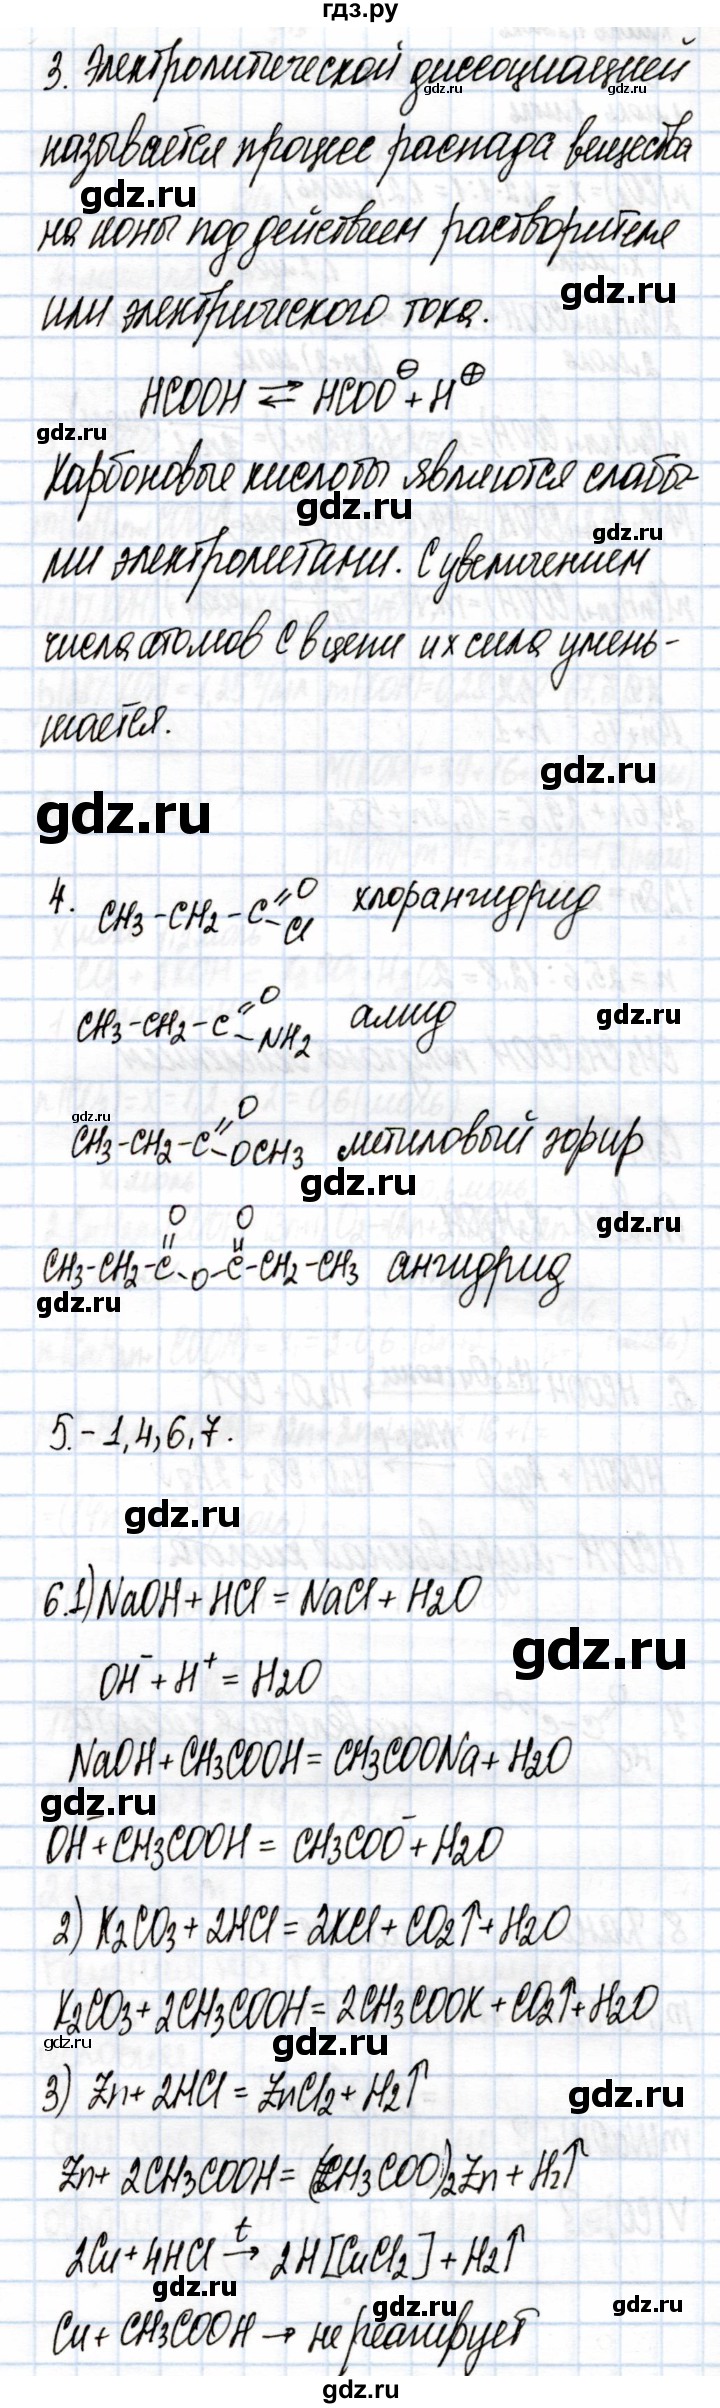 гдз.ру
3. Электролитической диссоциацией
gdz.ru gdz.ru
называется процесс распада вещества
gdz.ru
на ионы под действием растворителя
gdz.ru
или электрического тока.
HCOOH ⇄ HCOO⊖ + H⊕
gdz.ru
Карбоновые кислоты являются слабы-
gdz.ru
gdz.ru
ми электролитами. С увеличением
числа атомов С в цепи их сила умень-
шается.
gdz.ru
gdz.ru
4. CH3-CH2-C=O -Cl хлорангидрид
CH3-CH2-C=O -NH2 амид
gdz.ru
gdz.ru
CH3-CH2-C=O -OCH3 метиловый эфир
gdz.ru
gdz.ru
O O
CH3-CH2-C-O-C-CH2-CH3 ангидрид
gdz.ru
5. - 1, 4, 6, 7.
gdz.ru
6.1) NaOH + HCl = NaCl + H2O
gdz.ru
OH⁻ + H⁺ = H2O
NaOH + CH3COOH = CH3COONa + H2O
gdz.ru
OH⁻ + CH3COOH = CH3COO⁻ + H2O
2) K2CO3 + 2HCl = 2KCl + CO2↑ + H2O
K2CO3 + 2CH3COOH = 2CH3COOK + CO2↑ + H2O
gdz.ru gdz.ru
3) Zn + 2HCl = ZnCl2 + H2↑
gdz.ru
Zn + 2CH3COOH = (CH3COO)2Zn + H2↑
t
2Cu + 4HCl → 2H[CuCl2] + H2↑
gdz.ru
gdz.ru gdz.ru
Cu + CH3COOH → не реагирует
gdz.ru